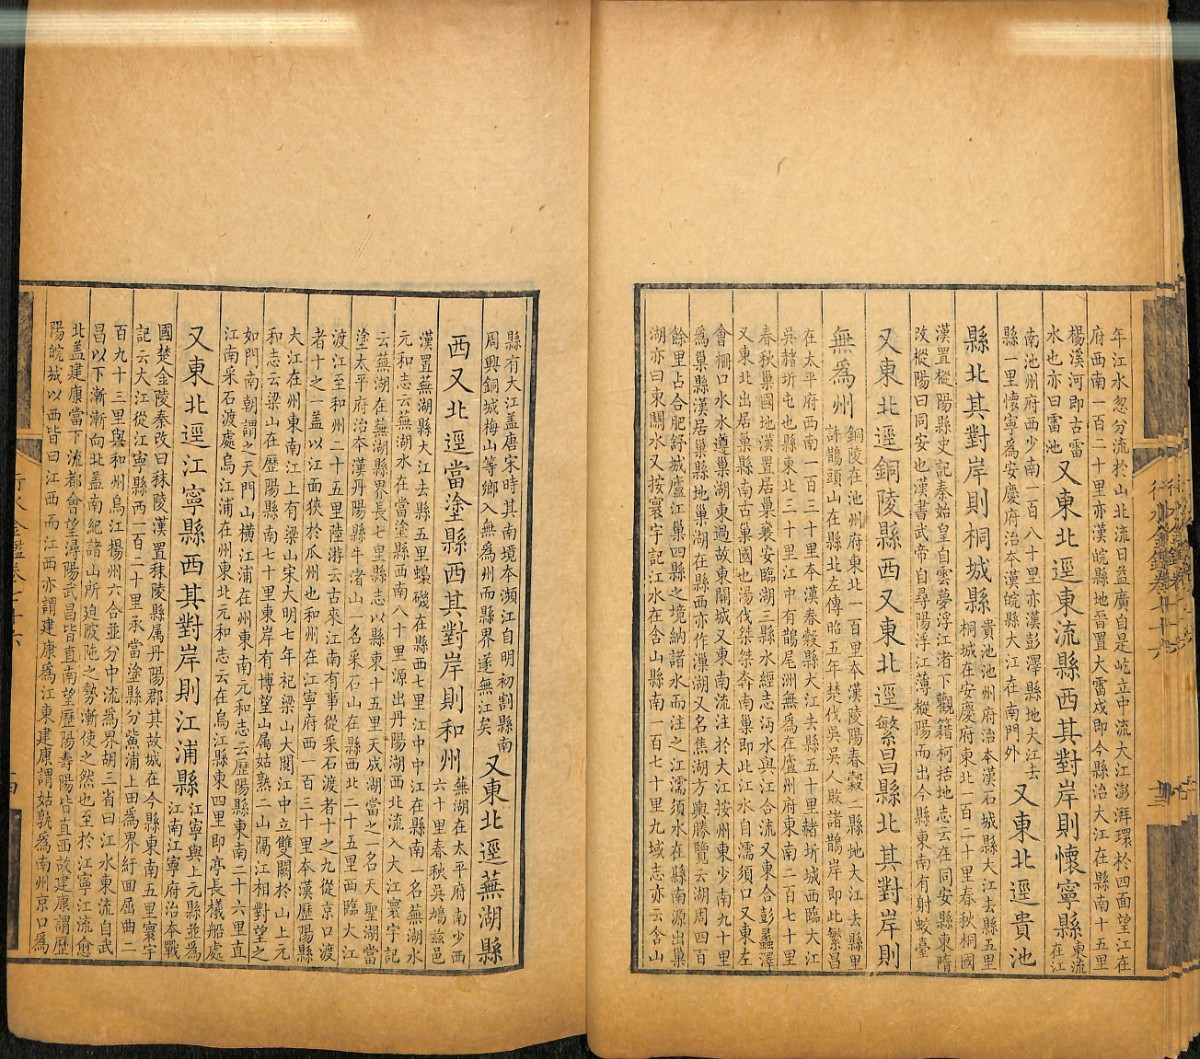 年江水忽分流於山北流日益廣自是屹立中流大江澎湃環於四面望江在
府西南一百二十里亦漢皖縣地晉置大雷戍即今縣治大江在縣南十五里
楊溪河即古雷水也亦曰雷池又東北逕東流縣西其對岸則懷寧縣東流在江
南池州府西少南一百八十里亦漢彭澤縣地大江去縣一里懷寧爲安慶府治本漢皖縣大江在南門外又東北逕貴池
縣北其對岸則桐城縣貴池池州府治本漢石城縣大江去縣五里桐城在安慶府東北一百二十里春秋桐國
漢置樅陽縣史記秦始皇自雲夢浮江者下觀籍柯括地志云在同安縣東隋
改樅陽曰同安也漢書武帝自尋陽浮江薄樅陽而出今縣東南有射蛟臺
又東北逕銅陵縣西又東北逕繁昌縣北其對岸則
無爲州銅陵在池州府東北一百里本漢陵陽春穀二縣地大江去縣里許鵲頭山在縣北左傳昭五年楚伐吳吳人敗諸鵲岸即此繁昌
在太平府西南一百三十里本漢春穀縣大江去縣五十里赭圻城西臨大江
吳赭圻屯也縣東北三十里江中有鵲尾洲無爲在廬州府東南二百七十里
春秋巢國地漢置居巢襄安臨湖三縣水經志沔水與江合流又東合彭蠡澤
又東北出居巢縣南古巢國也湯伐桀桀奔南巢即此江水自濡須口又東左
會柵口水水遵巢湖東過故東關城又東南流注於大江按州東少南九十里
爲巢縣漢居巢縣地巢湖在縣西亦作漅湖又名焦湖方輿勝覽云湖周四百
餘里占合肥舒城廬江巢四縣之境納諸水而注之江濡須水在縣南源出巢
湖亦曰東關水又按寰宇記江水在含山縣南一百七十里九域志亦云含山
縣有大江蓋唐宋時其南境本瀕江自明初割縣南周興銅城梅山等鄉入無爲州而縣界遂無江矣又東北逕蕪湖縣
西又北逕當塗縣西其對岸則和州蕪湖在太平府南少西六十里春秋吳鳩茲邑
漢置蕪湖縣大江去縣五里蟂磯在縣西七里江中中江在縣南一名蕪湖水
元和志云蕪湖水在當塗縣西南八十里源出丹陽湖西北流入大江寰宇記
云蕪湖在蕪湖縣界長七里縣志以縣東十五里天成湖當之一名天聖湖當
塗太平府治本漢丹陽縣牛渚山一名采石山在縣西北二十五里西臨大江
渡江至和州二十五里陸游云古來江南有事從采石渡者十之九從京口渡
者十之一蓋以江面狹於瓜州也和州在江寧府西一百三十里本漢歷陽縣
大江在州東南江上有梁山宋大明七年祀梁山大閱江中立雙闕於山上元
和志云梁山在歷陽縣南七十里東岸有博望山属姑熟二山隔江相對望之
如門南朝謂之天門山橫江浦在州東南元和志云歷陽縣東南二十六里直
江南采石渡處烏江浦在州東北元和志云在烏江縣東四里即亭長檥船處
又東北逕江寧縣西其對岸則江浦縣江寧與上元縣並爲江南江寧府治本戰
國楚金陵秦改曰秣陵漢置秣陵縣属丹陽郡其故城在今縣東南五里寰宇
記云大江從江寧縣西一百二十里承當塗縣分鮆浦上田爲界紆回屈曲二
百九十三里與和州烏江揚州六合並分中流爲界胡三省曰江水東流自武
昌以下漸漸向北蓋南紀諸山所迫陂陁之勢漸使之然也至於江寧江流愈
北蓋建康當下流都會望潯陽武昌皆直南望歷陽壽陽皆直西故建康謂歷
陽皖城以西皆曰江西而江西亦謂建康爲江東建康謂姑孰爲南州京口爲